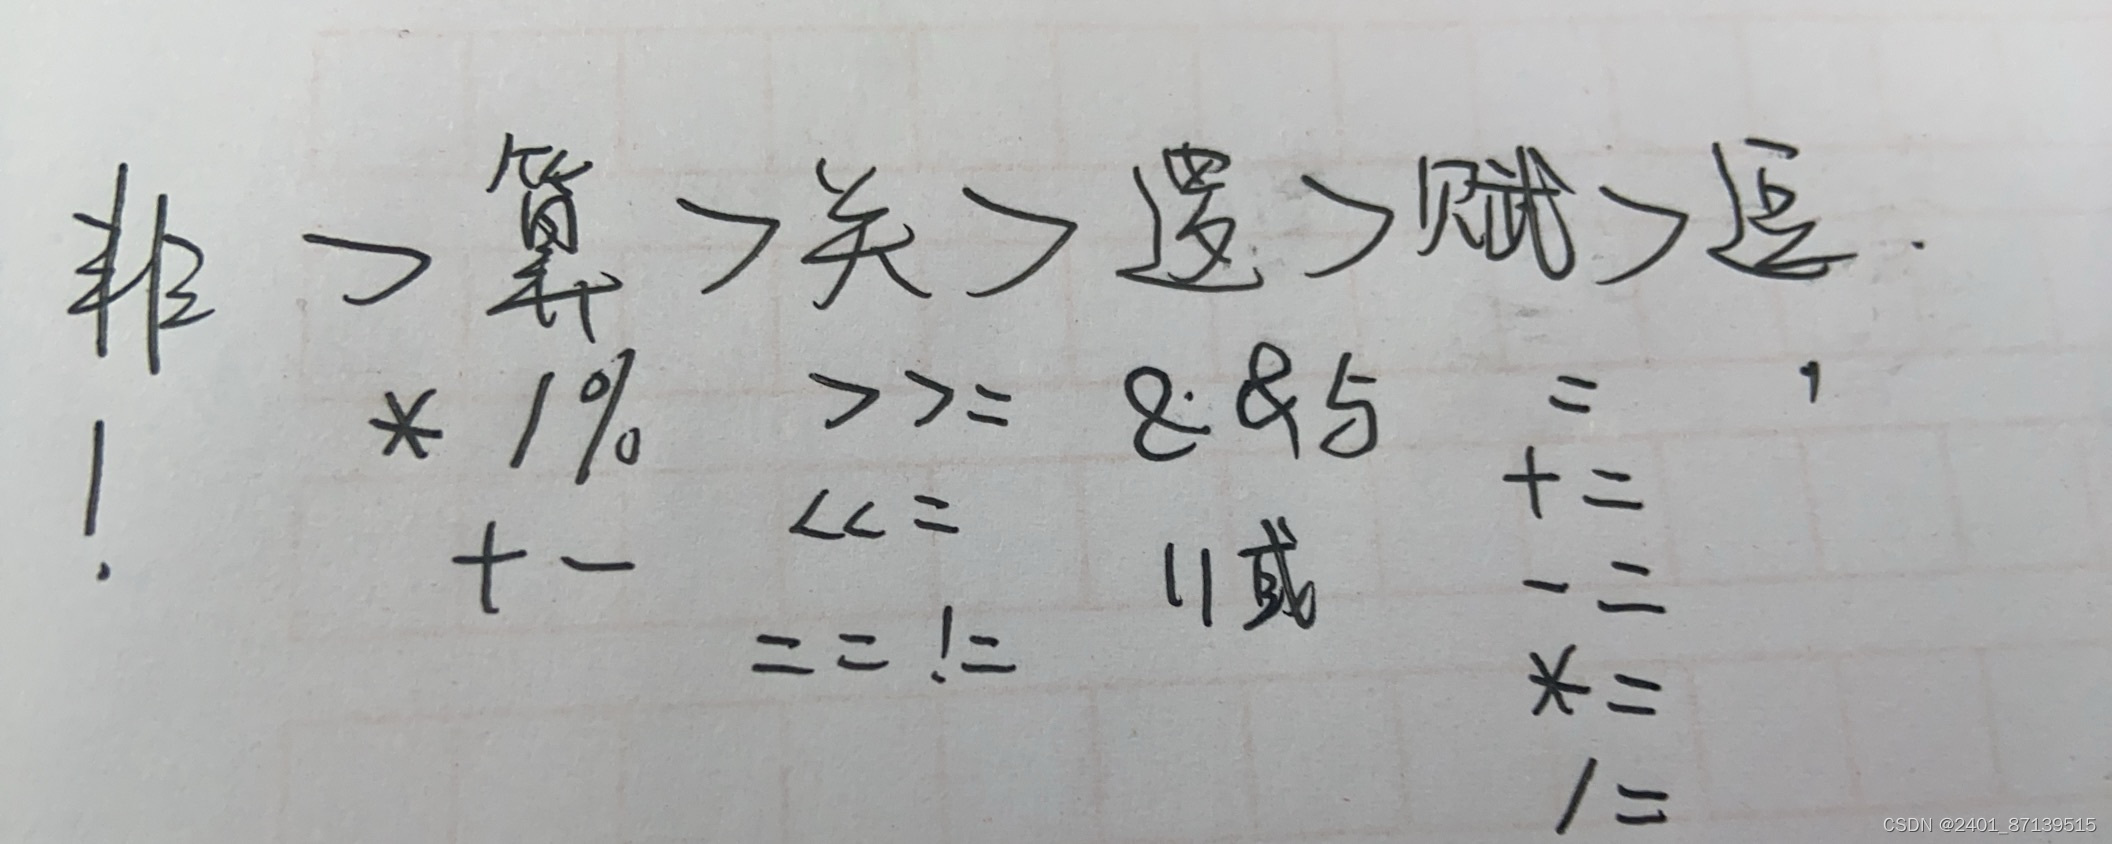 非 > 算 > 关 > 逻 > 赋 > 逗.
! * / % > >= && 与 = ,
< <= + =
+ - || 或 - =
== != * =
/ =
CSDN @2401_87139515